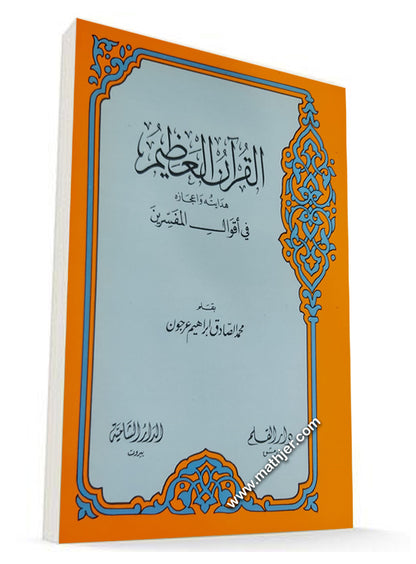 القرآن العظيم
هدايته وإعجازه
في أقوال المفسرين
بقلم
محمد الصادق إبراهيم عرجون
دار القلم
دمشق
الدار الشامية
بيروت
www.mathjer.com